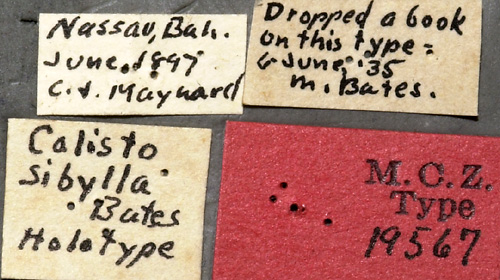 Nassau, Bah.
June. 1897
C. J. Maynard
Dropped a book
on this type =
6 June, '35
M. Bates.
Calisto
sibylla
Bates
Holotype
M.C.Z.
Type
19567